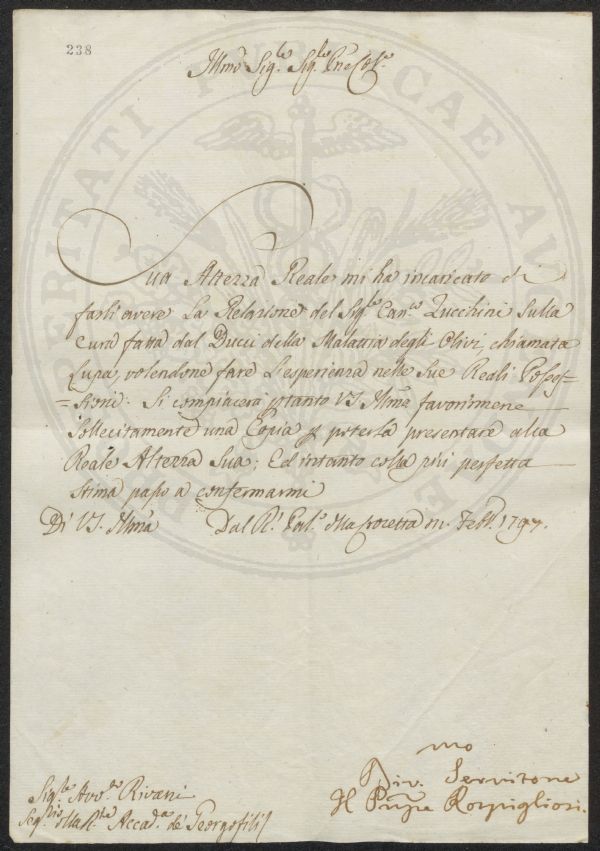 238
Illmo Sig.re Sig.re Pne Col.o
Sua Altezza Reale mi ha incaricato di
farli avere La Relazione del Sig.e Can.co Zucchini Sulla
Cura fatta dal Ducci della Malattia degli Olivi, chiamata
Lupa, volendone fare L'esperienza nelle Sue Reali Posses=
=sioni: Si compiacerà ptanto VS. Illma favorirmene
Sollecitamente una Copia p poterla presentare alla
Reale Altezza Sua; Ed intanto colla più perfetta
stima passo a confermarmi
Di VS. Illma Dal R. Pal.o della Crocetta Febb. 1797.
mo
Div. Servitore
Il Principe Rospigliosi.
Sig.re Avv.to Rivani
Seg.rio della R.le Accad.a de' Georgofili
PROSPERITATI PUBLICAE AUGENDAE